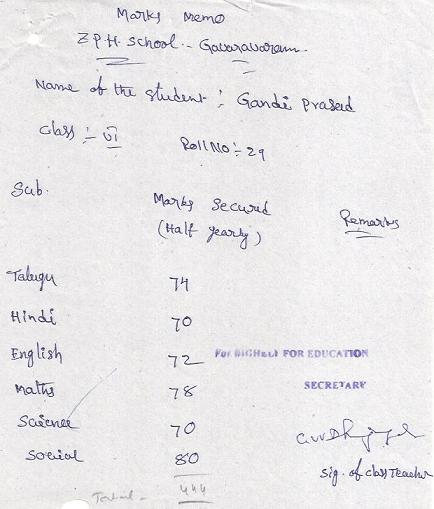 Marks Memo
Z.P.H. School - Gavaravaram
Name of the student : Gandi Prasad
Class :- VI
Roll No :- 29
Sub.
Marks Secured
(Half yearly)
Remarks
Telugu 74
Hindi 70
English 72
FOR EDUCATION
Maths 78
SECRETARY
Science 70
Social 80
Sig. of class Teacher
Total - 444